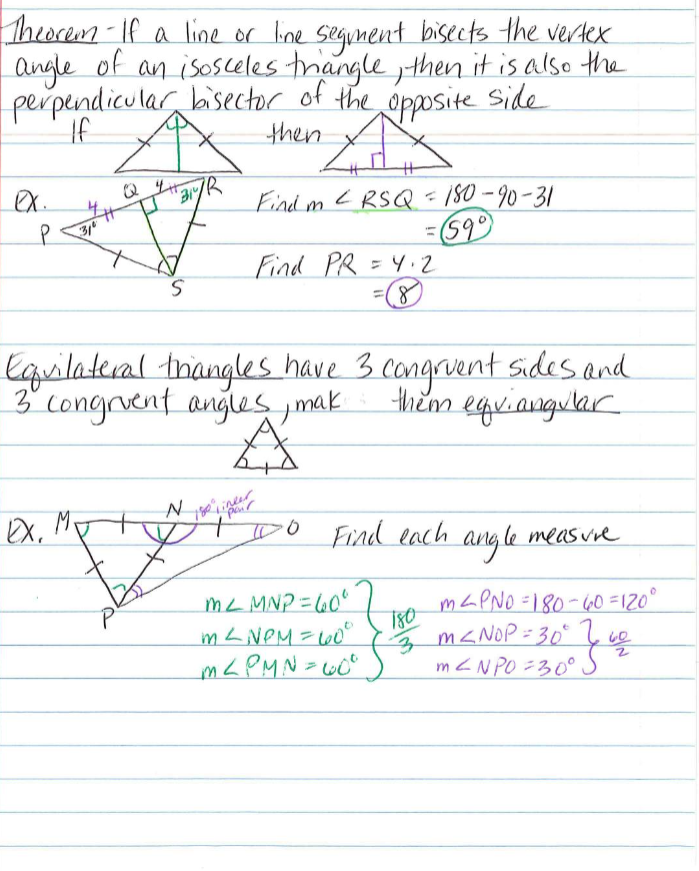 Theorem - If a line or line segment bisects the vertex
angle of an isosceles triangle, then it is also the
perpendicular bisector of the opposite side
If then
Ex. P 4 Q 4 R 31° 31° S
Find m ∠RSQ = 180-90-31
= 59°
Find PR = 4·2
= 8
Equilateral triangles have 3 congruent sides and
3 congruent angles, mak them equiangular
Ex. M N 180° linear pair O P
Find each angle measure
m∠MNP = 60°
m∠NPM = 60°
m∠PMN = 60°
180
3
m∠PNO = 180-60 = 120°
m∠NOP = 30°
m∠NPO = 30°
60
2